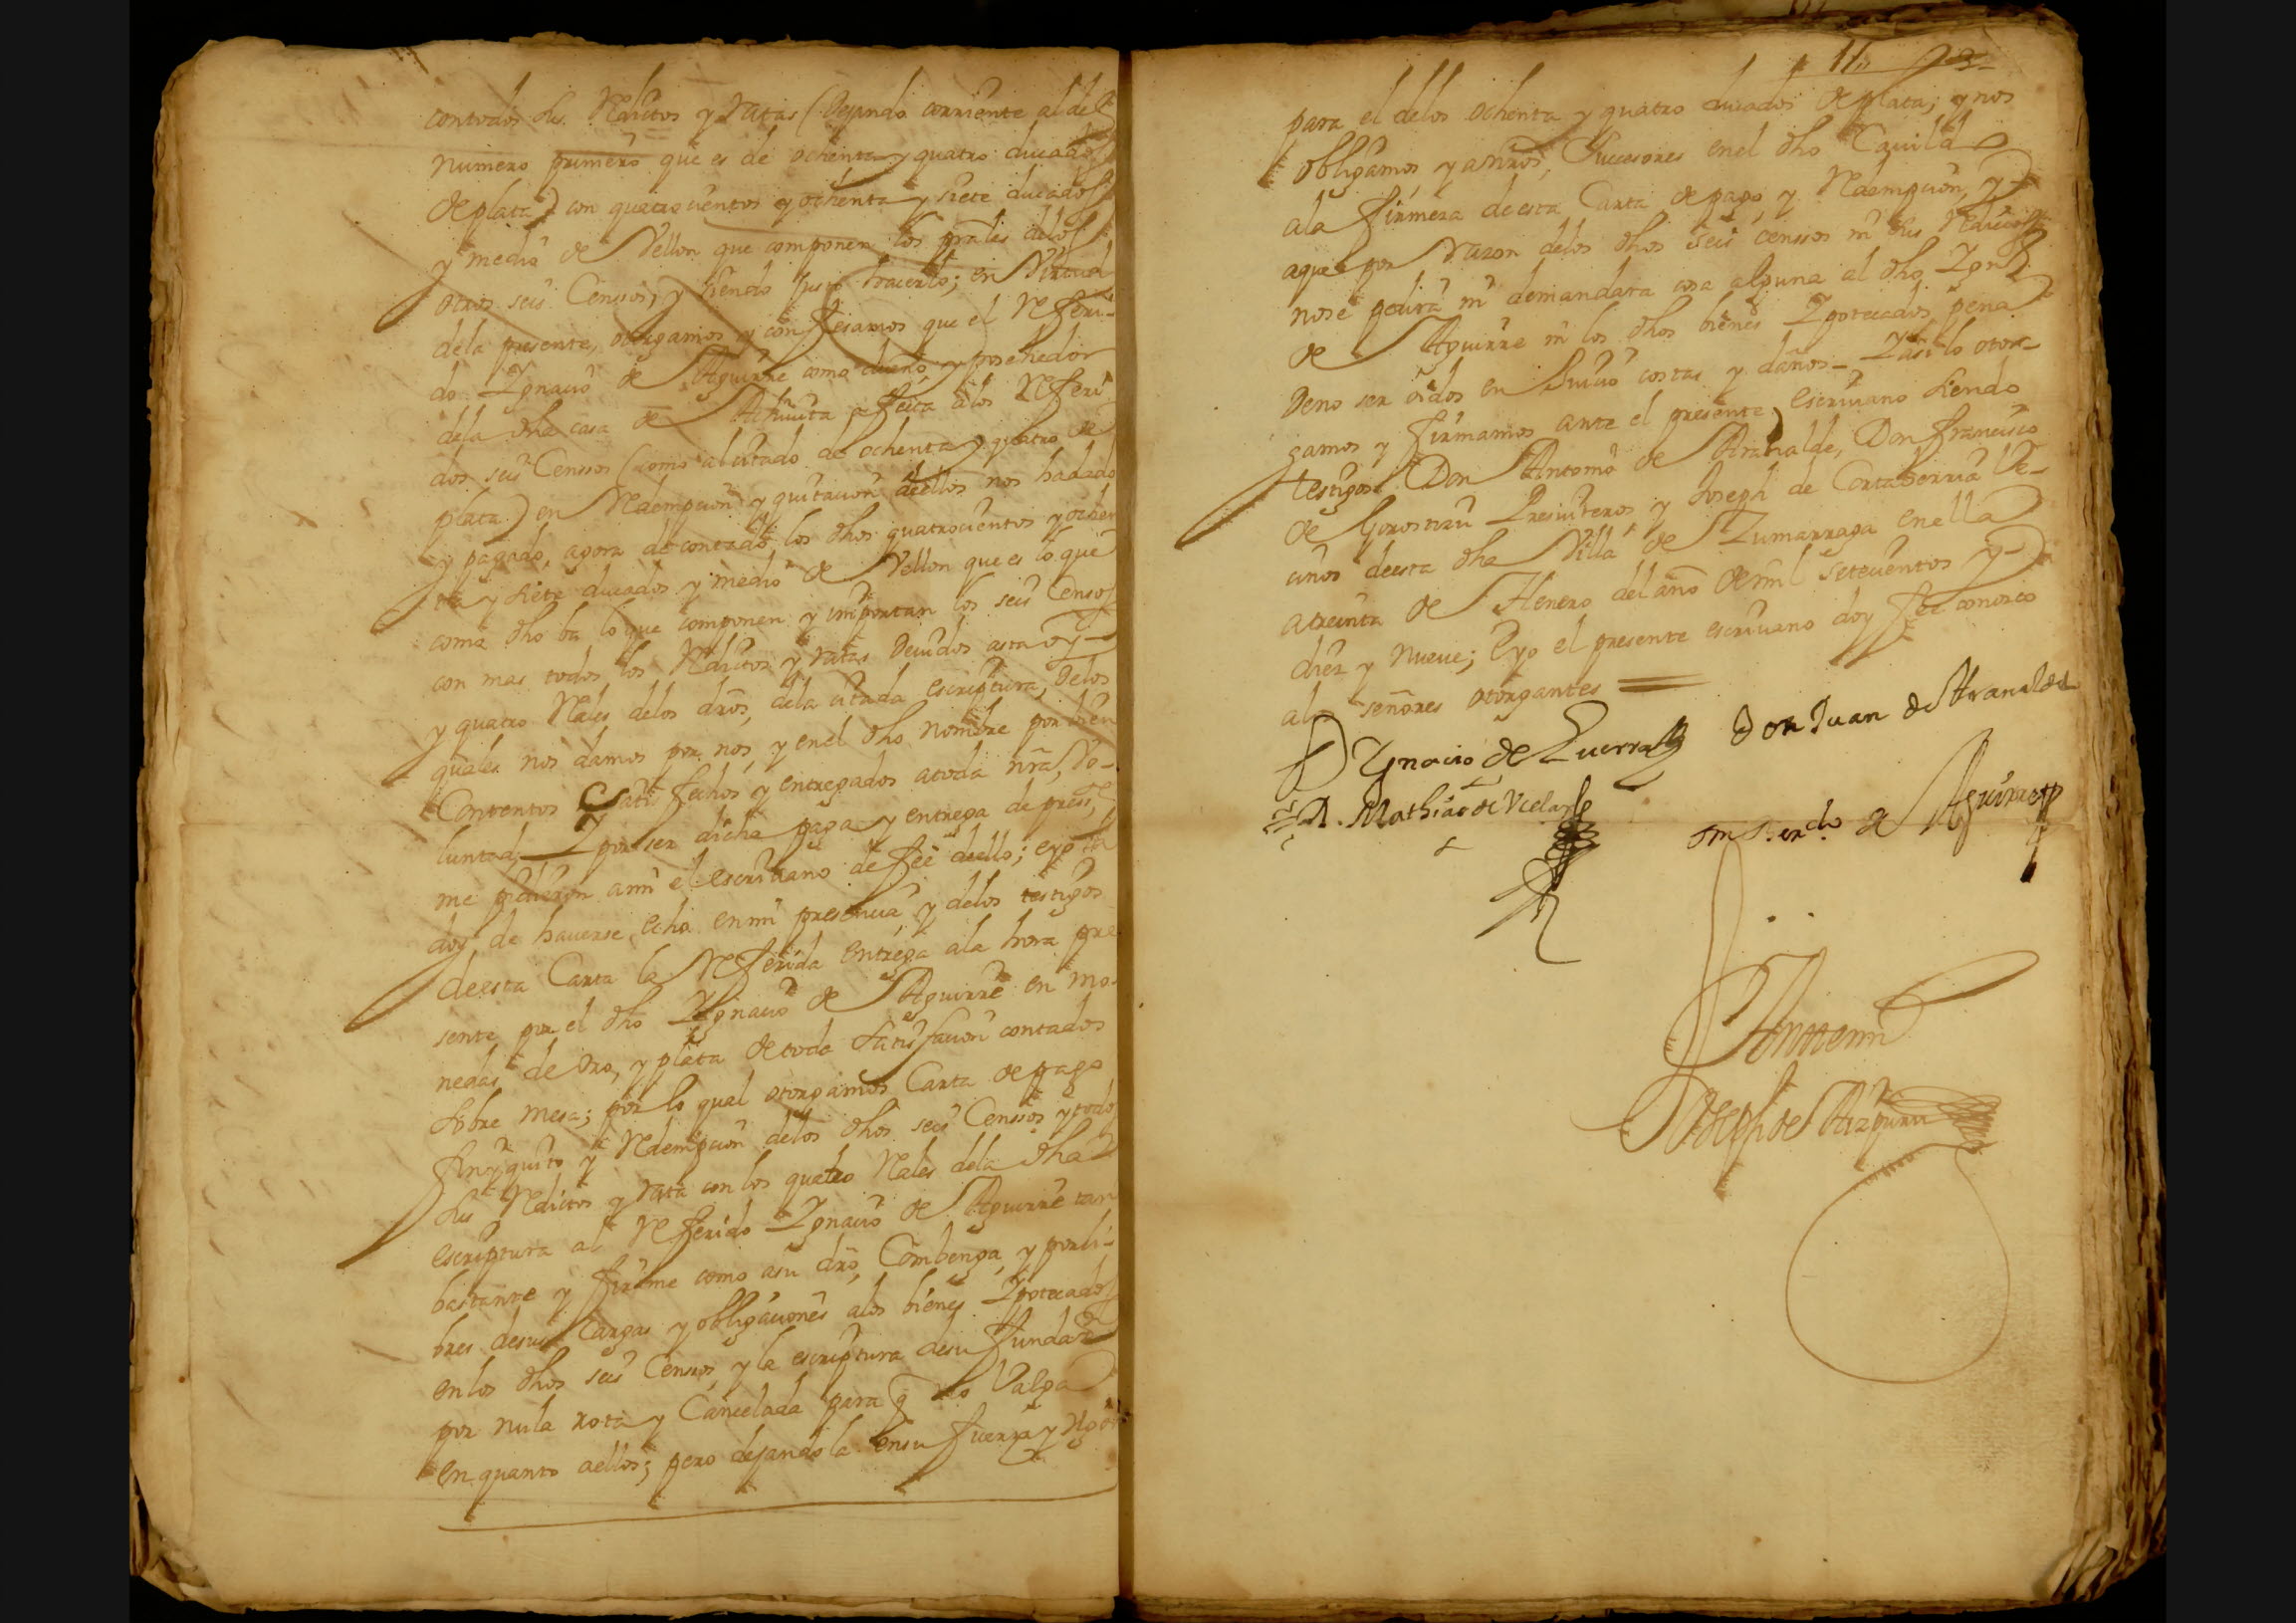 contodos sus Reditos y ratas (Dejando corriente al del
numero primero que es de ochenta y quatro ducados
de plata) con quatrocientos y ochenta y siete ducados
y medio de Vellon que componen los prales delos
otros seis Censsos, y siendo justo hacerlo; en Virtud
dela presente, otorgamos y confesamos que el Referi-
do Ygnacio de Aguirre como dueño, y posehedor
dela dha casa de afecta alos Referi
dos seis Censsos (como al citado de ochenta y quatro de
plata) en Redempcion y quitacion dellos nos hadado
y pagado, agora de contado los dhos quatrocientos y ochen
ta y siete ducados y medio de Vellon que es lo que
como dho ba lo que componen y importan los seis Censos
con mas todos los Reditos y ratas Deuidos asta oy
y quatro Rales delos dros, dela citada escriptura, Delos
quales nos damos por nos, y enel dho nombre por bien
Contentos Satisfechos y entregados atoda nra, Vo-
luntad; Y por ser dicha paga y entrega de presste,
me pidieron ami el escriuano de fee dello; eyo la
doy de hauerse echo enmi presencia y delos testigos
deesta Carta la Referida entrega ala hora pre
sente por el dho Ygnacio de Aguirre en mo-
nedas de Oro, y plata de toda satisfacion contados
sobre mesa; por lo qual otorgamos Carta de pago
finyquito y Redempcion delos dhos seis Censsos y todos
sus Reditos y rata con los quatro Rales dela dha
escriptura al Referido Ygnacio de Aguirre tan
bastante y firme como asu dro, Combenga, y porli-
bres desus Cargas y obligaciones alos bienes Ypotecados
enlos dhos seis Censsos, y la escriptura desu fundaon
por nula rota y Cancelada para q no Valga
en quanto aellos; pero dejandola ensu fuerza y Rigor
11
para el delos ochenta y quatro ducados de plata; y nos
obligamos y anros, Sucesores enel dho Cauildo
ala firmeza deesta Carta de pago y Redempcion, y
aque por razon delos dhos seis censsos ni sus Reditos
nose pedira ni demandara cosa alguna al dho Ygnº
de Aguirre ni los dhos bienes Ypotecados pena
Deno ser oidos en Juicio costas y daños- Yasi lo otor-
gamos y firmamos ante el presente escriuano siendo
testigos Don Antonio de Aranalde, Don Francisco
de Gorostizu Presuiteros y Joseph de Cortaberria Ve-
cinos deesta dha Villa de Zumarraga enella
atreinta de Henero del año de mil setecientos y
diez y nueue; Eyo el presente escriuano doy fee conozco
alos señores otorgantes
D Ygnacio de Don Juan de Aranalde
D. Mathias de Vicelar
de Aguirre
Antemi
Joseph de Aizpuru